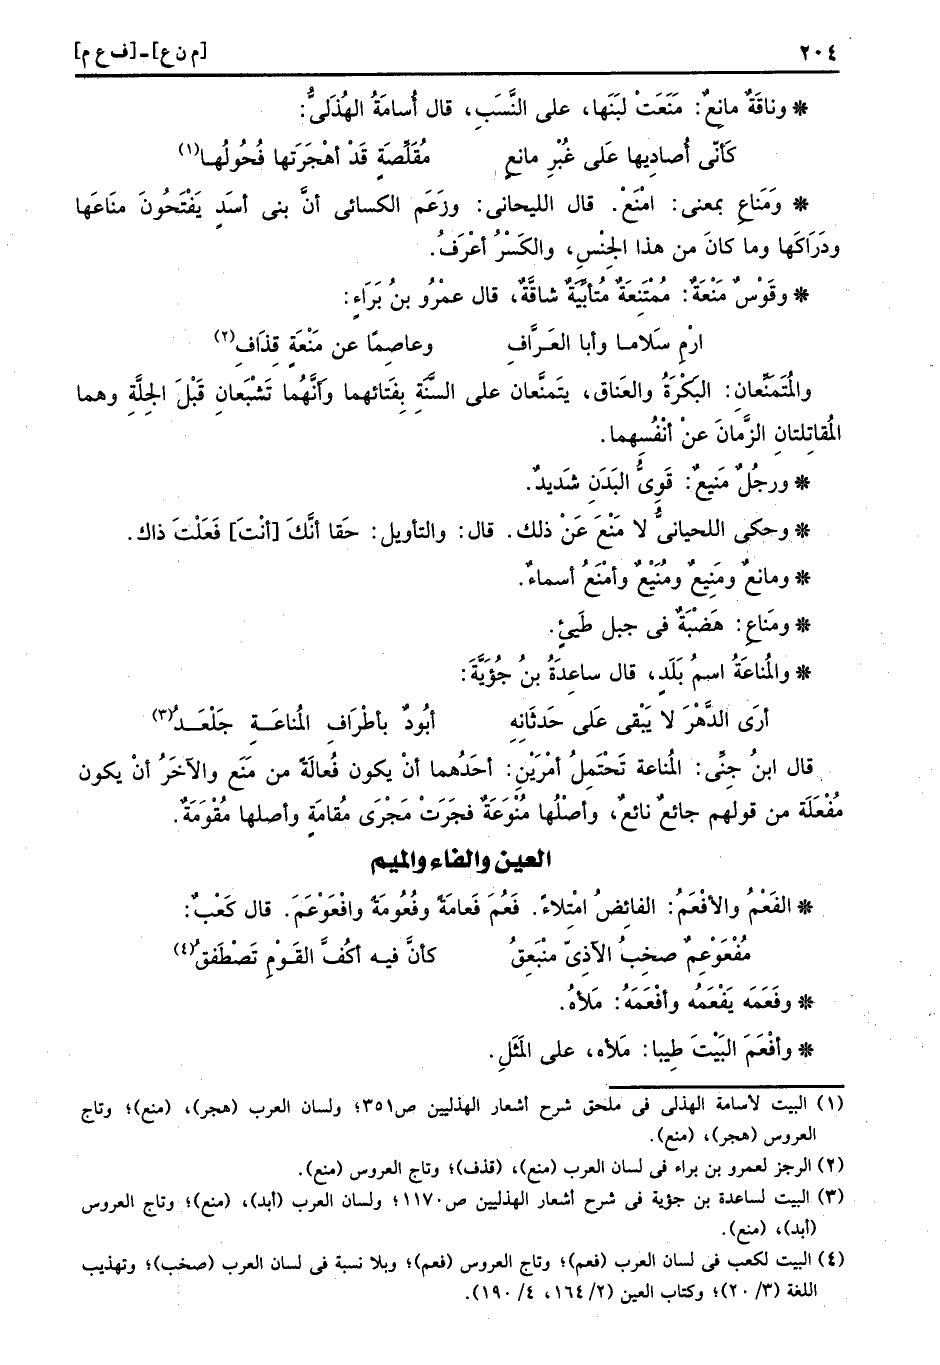 ٢٠٤ [م ن ع]-[ف ع م]
* وناقَةٌ مانِعٌ: مَنَعَتْ لبَنَها، على النَّسَبِ، قال أُسامَةُ الهُذَلىُّ:
كَأنّى أُصادِيها عَلى غُبْرِ مانعٍ مُقَلّصَةٍ قَدْ أهْجَرَتها فُحُولُهـا(١)
* ومَنَاعِ بمعنى: امْنَعْ. قال اللحيانى: وزَعَم الكسائى أنَّ بنى أسَدٍ يَفْتَحُونَ منَاعَها
ودَرَاكَها وما كانَ من هذا الجِنْسِ، والكَسْرُ أعْرَفُ.
* وقَوْسٌ مَنْعَةٌ: ممُتْنِعَةٌ مُتأبِّيَةٌ شاقَّةٌ، قال عمْرُو بنُ بَرَاءٍ:
ارْمِ سَلامـا وأبا العَـرَّافِ وعاصِمًا عن مَنْعَةٍ قذَافِ(٢)
والمُتَمَنِّعانِ: البَكْرَةُ والعَناق، يتَمنَّعان على السَّنَةِ بِفَتائهما وأنَّهُما تَشْبَعانِ قَبْلَ الجِلَّةِ وهما
المُقاتِلتانِ الزَّمانَ عنْ أنْفُسِهما.
* ورجُلٌ مَنيعٌ: قَوِىُّ البَدَنِ شَديدٌ.
* وحكى اللحيانىُّ لا مَنْعَ عَنْ ذلك. قال: والتأويل: حَقا أنَّكَ [أنْتَ] فَعَلْتَ ذاك.
* ومانعٌ ومَنِيعٌ ومُنَيْعٌ وأمْنَعُ أسماءٌ.
* ومَناعِ: هَضْبَةٌ فى جبل طَيئٍ.
* والمُناعَةُ اسمُ بَلَدٍ، قال ساعِدَةُ بنُ جُؤَيَّةَ:
أرَى الدَّهْرَ لا يَبْقى عَلى حَدثانِه أبُودٌ بأطْرَافِ المُناعَـةِ جَلْعَـدُ(٣)
قال ابنُ جِنِّى: المُناعة تَحْتَمِلُ أمْرَيْنِ: أحَدُهما أنْ يكون فُعالَةً من مَنَع والآخَرُ أنْ يكون
مُفْعَلَة من قولهم جائعٌ نائعٌ، وأصْلُها مُنْوَعَةٌ فجَرَتْ مَجْرَى مُقامَةٍ وأصلها مُقْوَمَةٌ.
العين والفاء والميم
* الفَعْمُ والأفْعَمُ: الفائضُ امْتِلاءً. فَعُمَ فَعامَةً وفُعُومَةً وافْعَوْعَمَ. قال كَعْبٌ:
مُفْعَوْعِمٌ صخِبُ الآذِىّ منْبَعِقُ كأنَّ فيـه أكُفَّ القَـوْمِ تَصْطَفقُ(٤)
* وفَعَمَه يَفْعَمُه وأفْعَمَهُ: مَلأهُ.
* وأفْعَمَ البَيْتَ طيبا: مَلأه، على المَثَلِ.
(١) البيت لأسامة الهذلى فى ملحق شرح أشعار الهذليين ص٣٥١؛ ولسان العرب (هجر)، (منع)؛ وتاج
العروس (هجر)، (منع).
(٢) الرجز لعمرو بن براء فى لسان العرب (منع)، (قذف)؛ وتاج العروس (منع).
(٣) البيت لساعدة بن جؤية فى شرح أشعار الهذليين ص١١٧٠؛ ولسان العرب (أبد)، (منع)؛ وتاج العروس
(أبد)، (منع).
(٤) البيت لكعب فى لسان العرب (فعم)؛ وتاج العروس (فعم)؛ وبلا نسبة فى لسان العرب (صخب)؛ وتهذيب
اللغة (٣/ ٢٠)؛ وكتاب العين (٢/ ١٦٤، ٤/ ١٩٠).